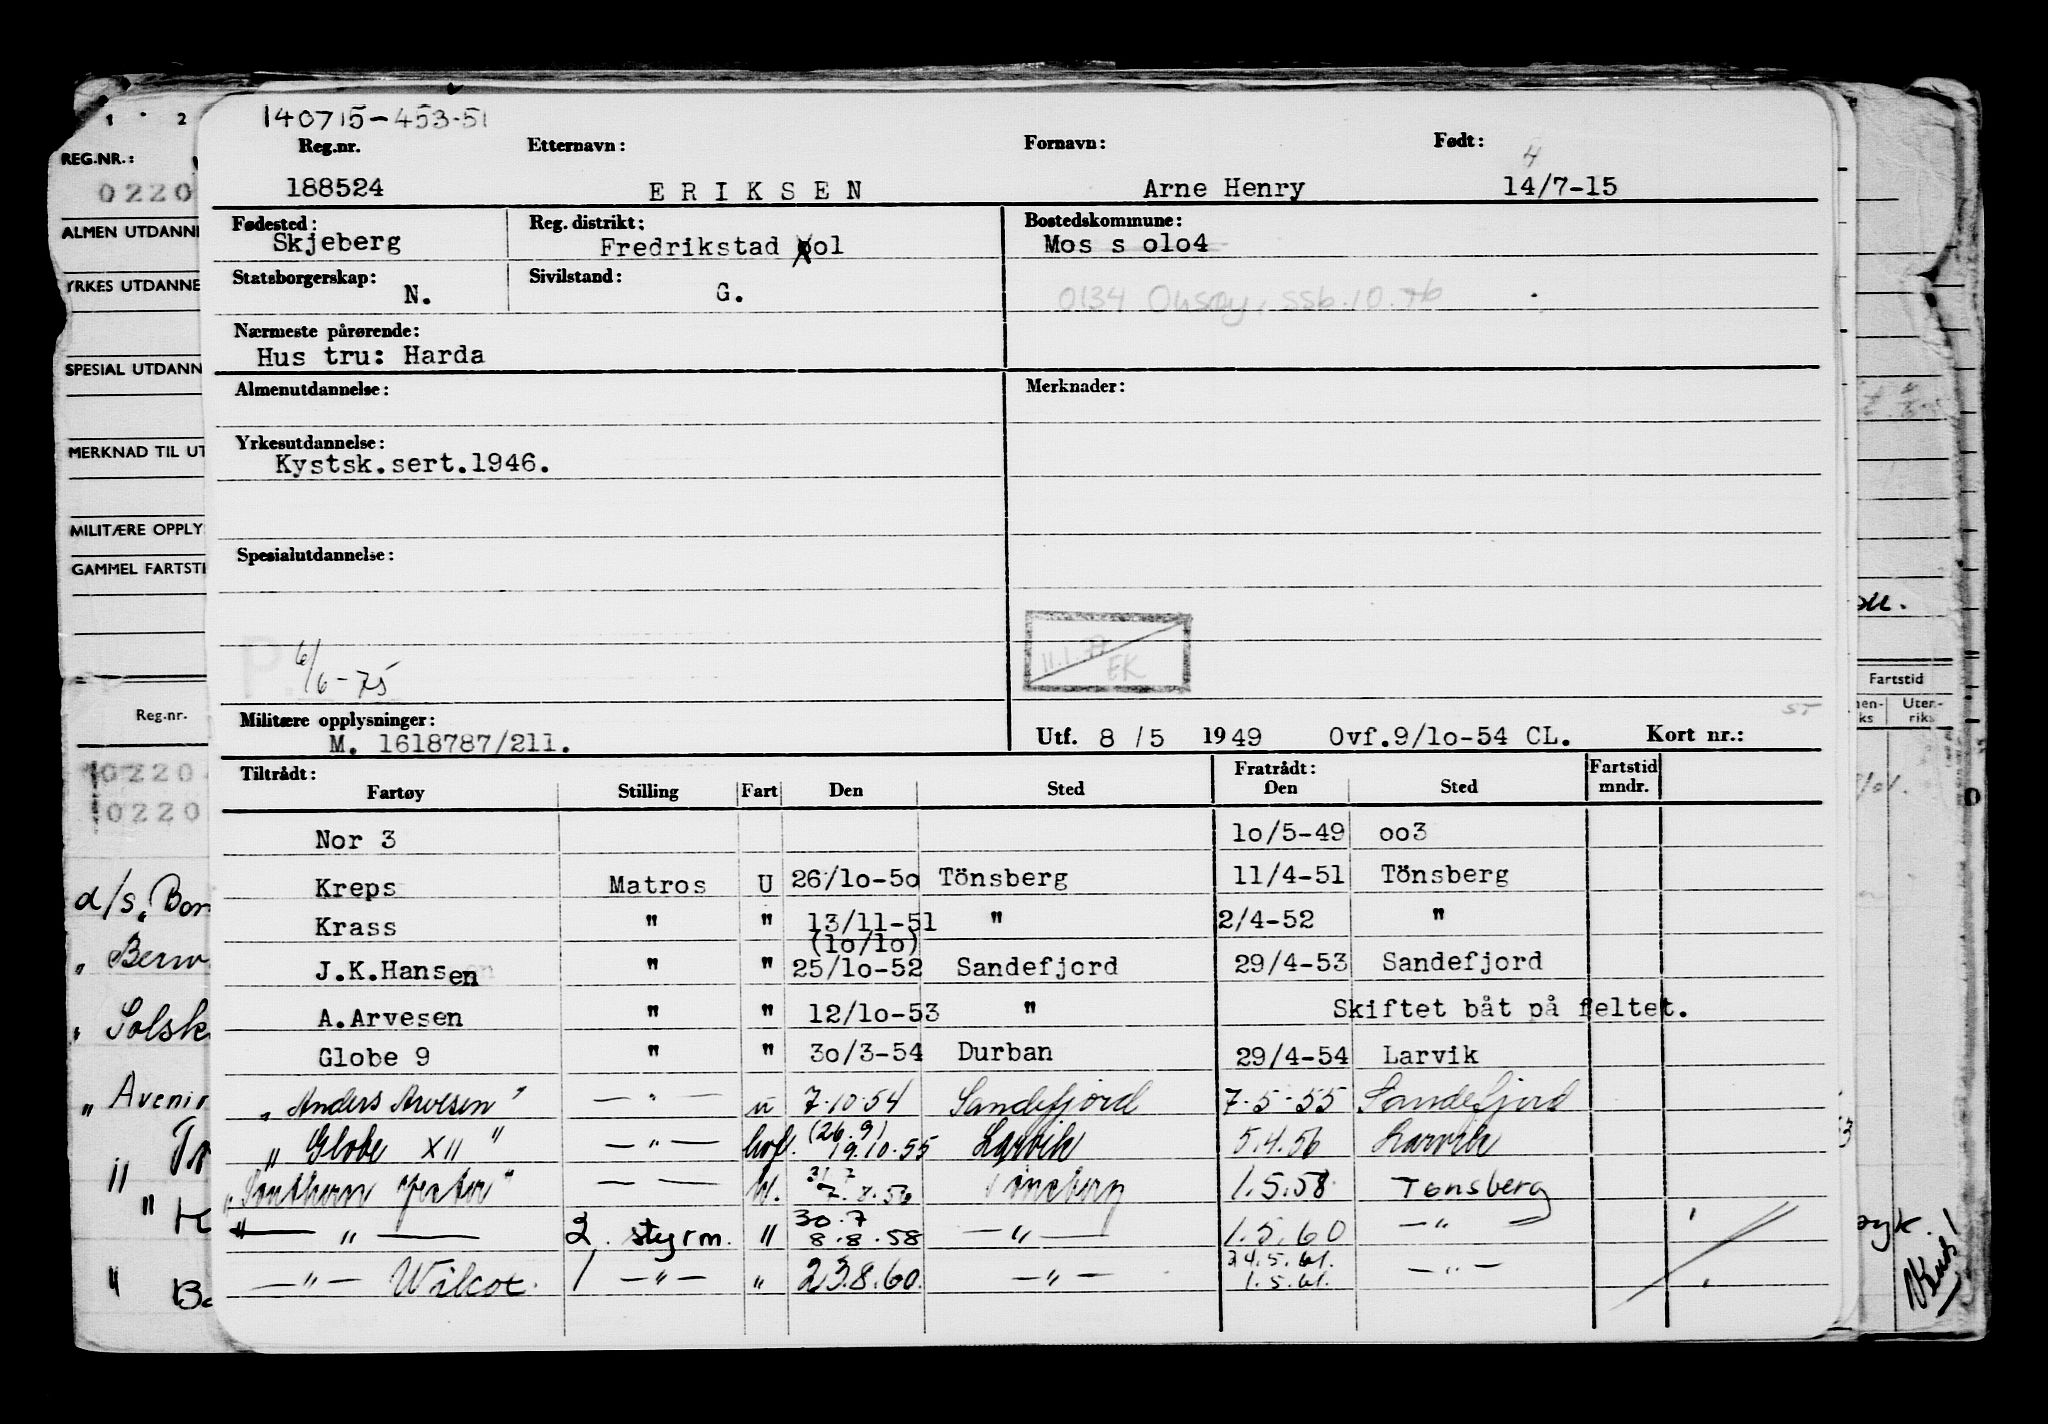 140715-453-51
Reg.nr. Etternavn: Fornavn: Født:
4
188524 ERIKSEN Arne Henry 14/7-15
Fødested: Reg. distrikt: Bostedskommune:
Skjeberg Fredrikstad ol Mos s olo4
Statsborgerskap: Sivilstand:
N. G.
0134 Onsøy, ssb.10.76
Nærmeste pårørende:
Hus tru: Harda
Almenutdannelse: Merknader:
Yrkesutdannelse:
Kystsk.sert.1946.
Spesialutdannelse:
11.1.77
EK
6/6-75
Militære opplysninger:
M. 1618787/211.
Utf. 8 /5 1949 Ovf.9/lo-54 CL. Kort nr.:
Tiltrådt: Fratrådt: Fartstid
Fartøy Stilling Fart Den Sted Den Sted mndr.
Nor 3 lo/5-49 oo3
Kreps Matros U 26/lo-5o Tönsberg 11/4-51 Tönsberg
Krass " " 13/11-51 " 2/4-52 "
(lo/lo)
J.K.Hansen " " 25/lo-52 Sandefjord 29/4-53 Sandefjord
A.Arvesen " " 12/lo-53 " Skiftet båt på feltet.
Globe 9 " " 3o/3-54 Durban 29/4-54 Larvik
" Anders Arvesen " — " — u 7.10.54 Sandefjord 7-5-55 Sandefjord
(26.9)
" Globe XII " — " — hvf. 19.10.55 Larvik 5.4.56 Larvik
31 7
" Southern " — " — 7.8.56 Tønsberg 1.5.58 Tønsberg
30.7
" — " — 2. styrm. " 8.8.58 — " — 1.5.60 — " —
24.5.61.
— " — Wilcox. 1 — " — " 23.8.60. — " — 1.5.61. — " —
1 2
REG.NR.:
0220
ALMEN UTDANNE
YRKES UTDANNE
SPESIAL UTDANN
MERKNAD TIL UT
MILITÆRE OPPLY
GAMMEL FARTSTI
Reg.nr.
0220
0220
d/s "Bor
"
" Solsk
" Avenir
"
"
" Ba
Fartstid
Uten-
riks